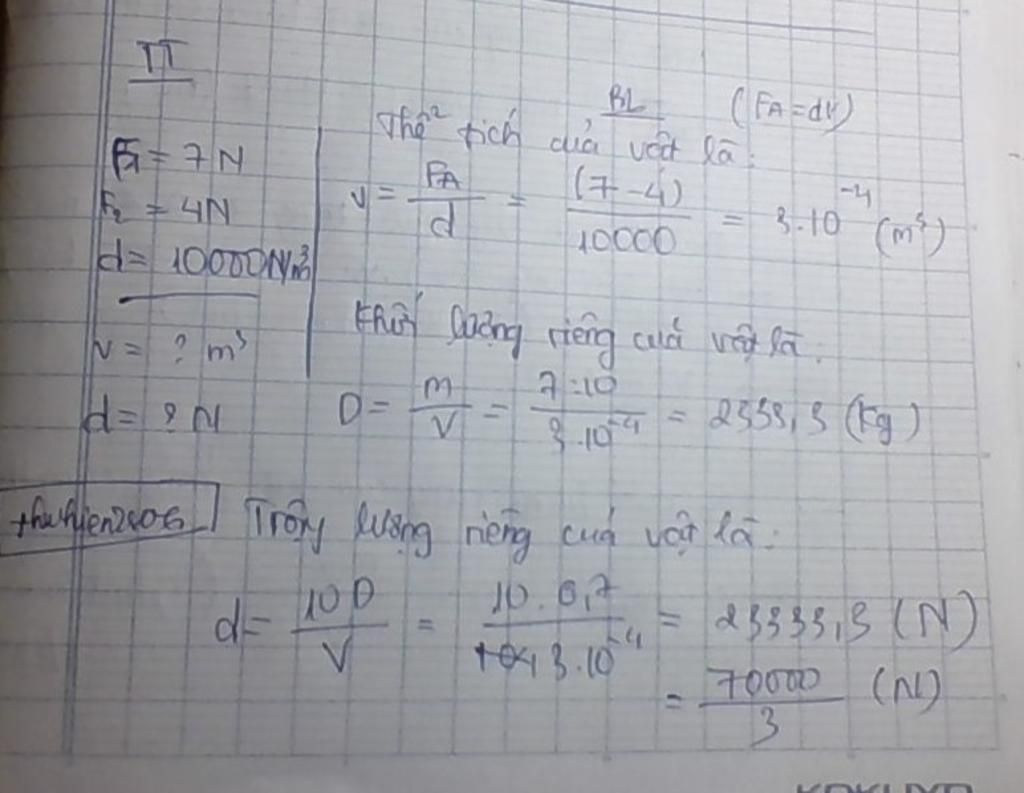 TT
F₁ = 7N
F₂ = 4N
d = 10000N/m³
V = ? m³
d = ? N
BL (FA = dV)
Thể tích của vật là:
V = FA/d = (7-4)/10000 = 3.10⁻⁴ (m³)
Khối lượng riêng của vật là:
D = m/V = 7:10/3.10⁻⁴ = 2333,3 (kg)
thuhien2406
Trọng lượng riêng của vật là:
d = 10D/V = 10.0,7/3.10⁻⁴ = 23333,3 (N)
= 70000/3 (N)